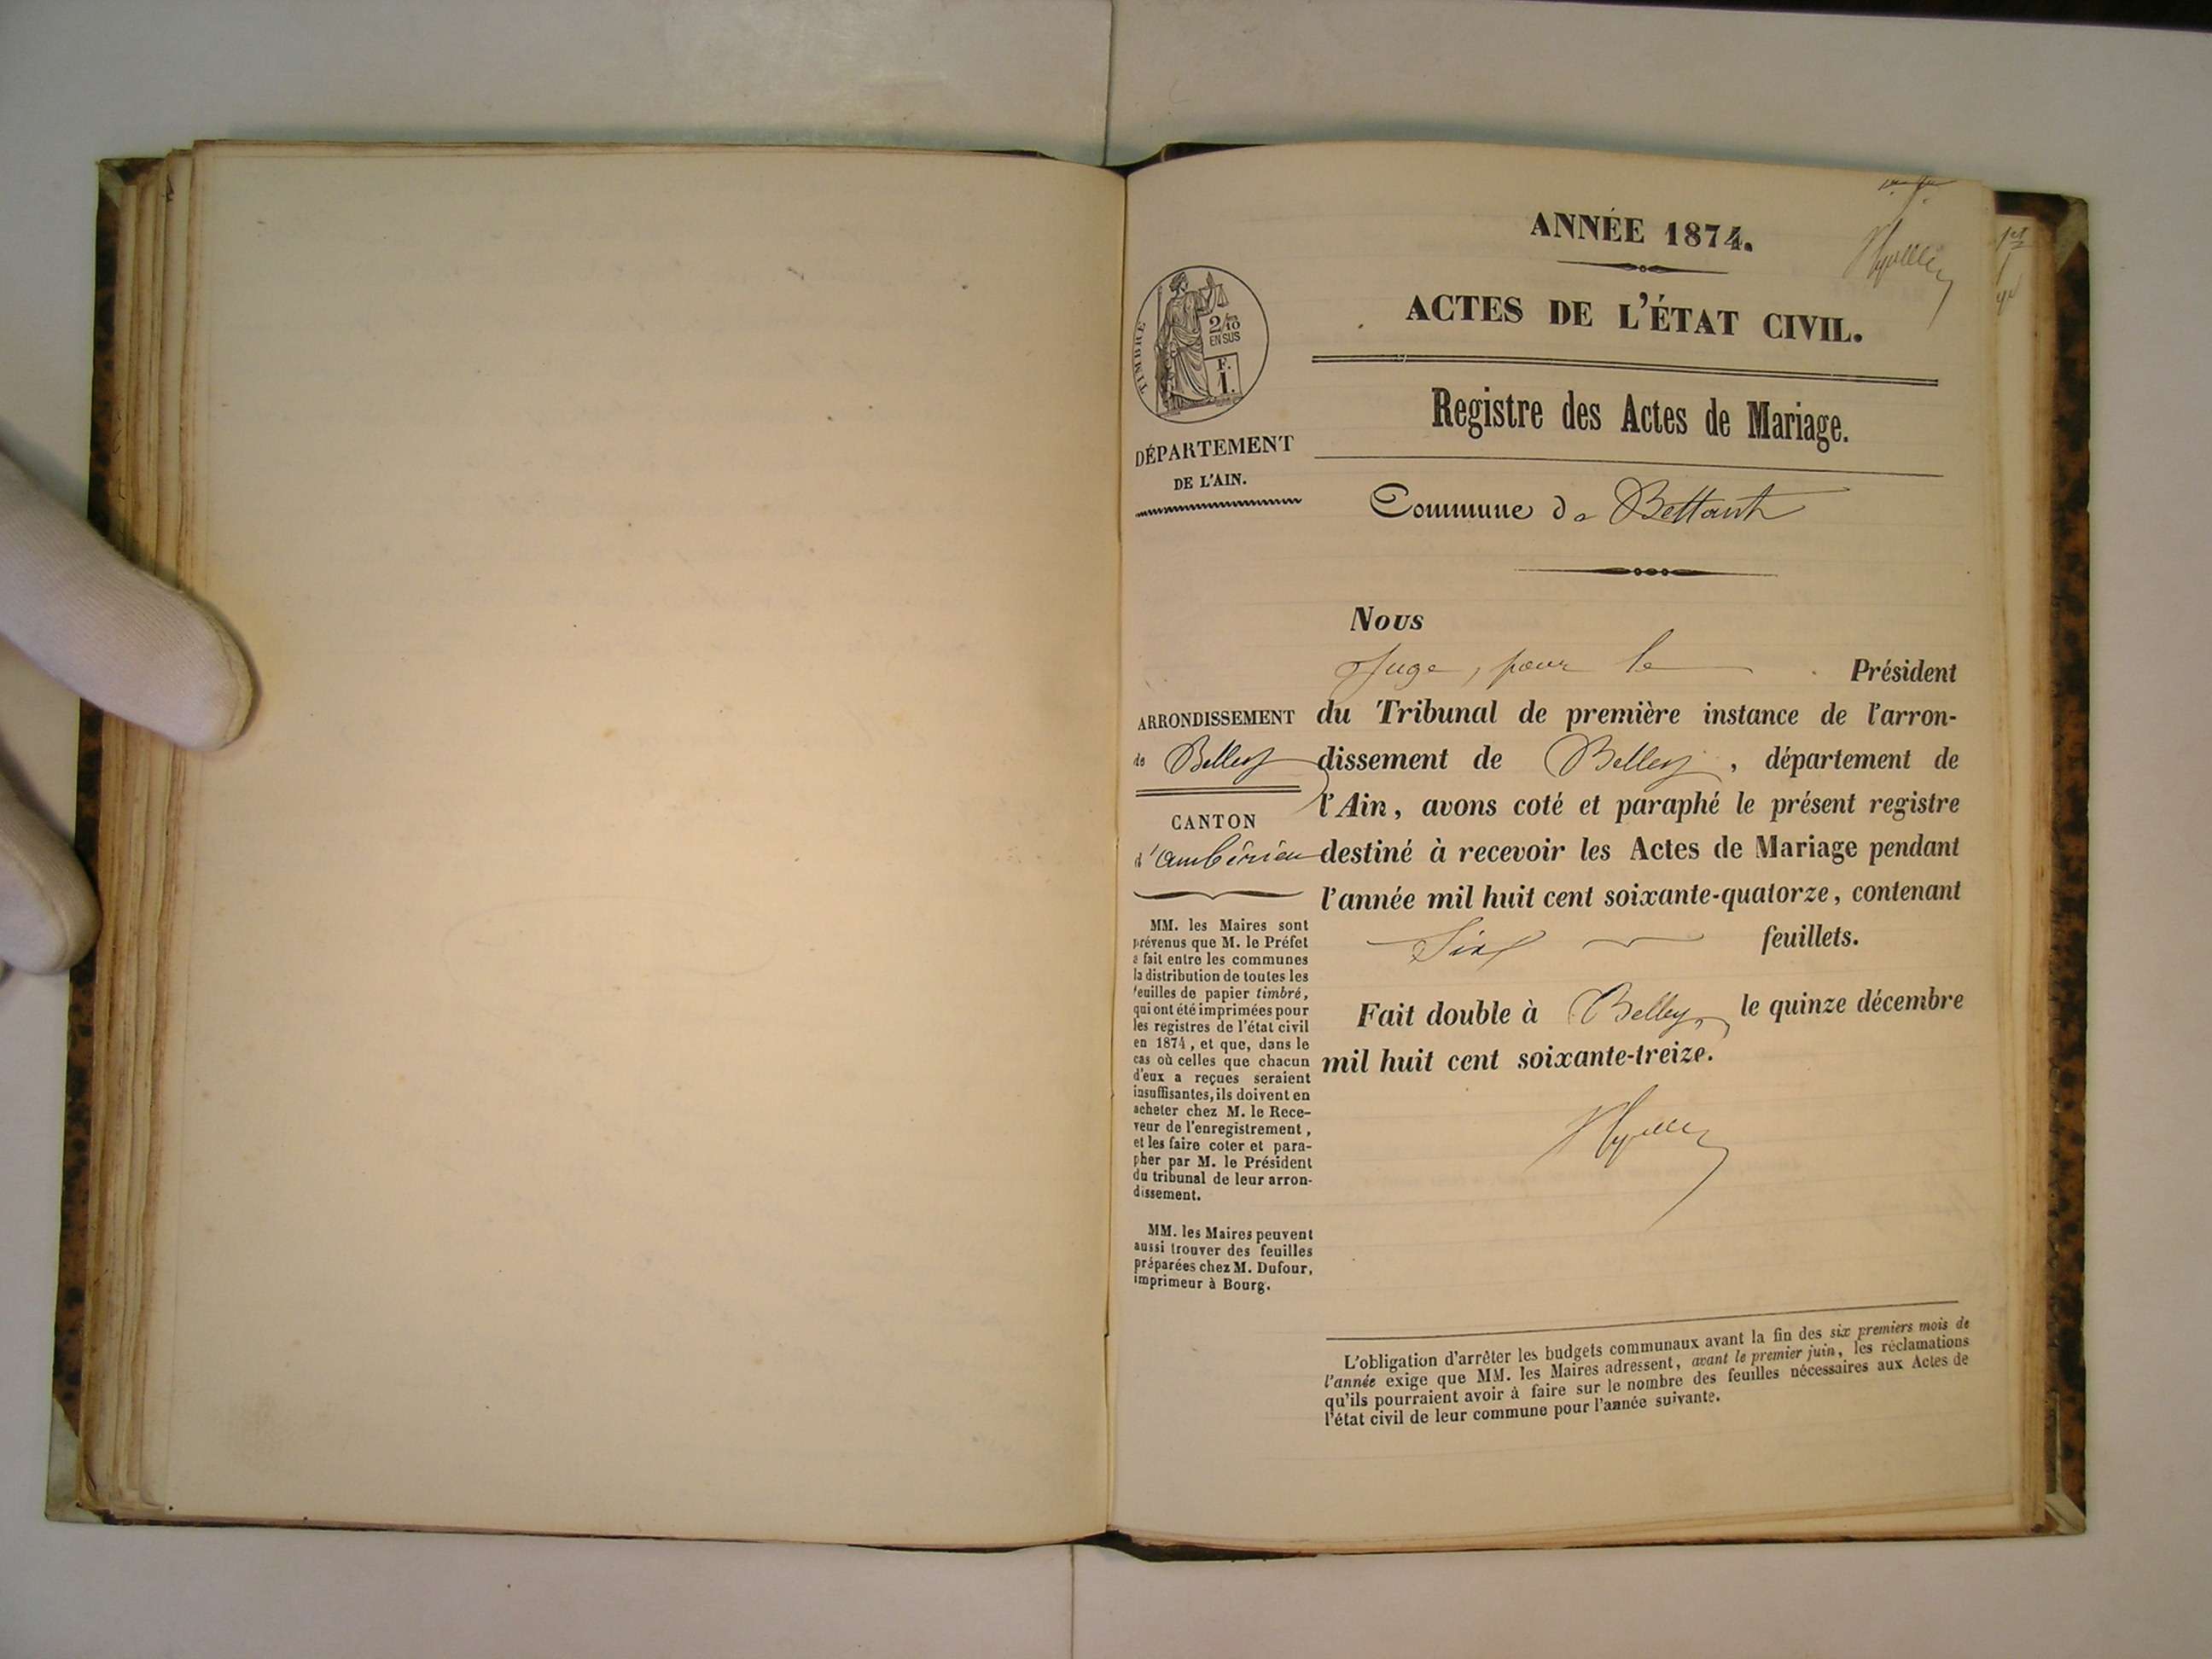 ANNÉE 1874.
ACTES DE L'ÉTAT CIVIL.
TIMBRE
2/10
EN SUS
F.
1.
Registre des Actes de Mariage.
DÉPARTEMENT
DE L'AIN.
Commune de Bettant
Nous
Juge, pour le Président
ARRONDISSEMENT
de Belley
CANTON
d'ambérieu
du Tribunal de première instance de l'arron-
dissement de Belley, département de
l'Ain, avons coté et paraphé le présent registre
destiné à recevoir les Actes de Mariage pendant
l'année mil huit cent soixante-quatorze, contenant
Six feuillets.
Fait double à Belley, le quinze décembre
mil huit cent soixante-treize.
MM. les Maires sont
prévenus que M. le Préfet
a fait entre les communes
la distribution de toutes les
feuilles de papier timbré,
qui ont été imprimées pour
les registres de l'état civil
en 1874, et que, dans le
cas où celles que chacun
d'eux a reçues seraient
insuffisantes, ils doivent en
acheter chez M. le Rece-
veur de l'enregistrement,
et les faire coter et para-
pher par M. le Président
du tribunal de leur arron-
dissement.
MM. les Maires peuvent
aussi trouver des feuilles
préparées chez M. Dufour,
imprimeur à Bourg.
L'obligation d'arrêter les budgets communaux avant la fin des six premiers mois de
l'année exige que MM. les Maires adressent, avant le premier juin, les réclamations
qu'ils pourraient avoir à faire sur le nombre des feuilles nécessaires aux Actes de
l'état civil de leur commune pour l'année suivante.